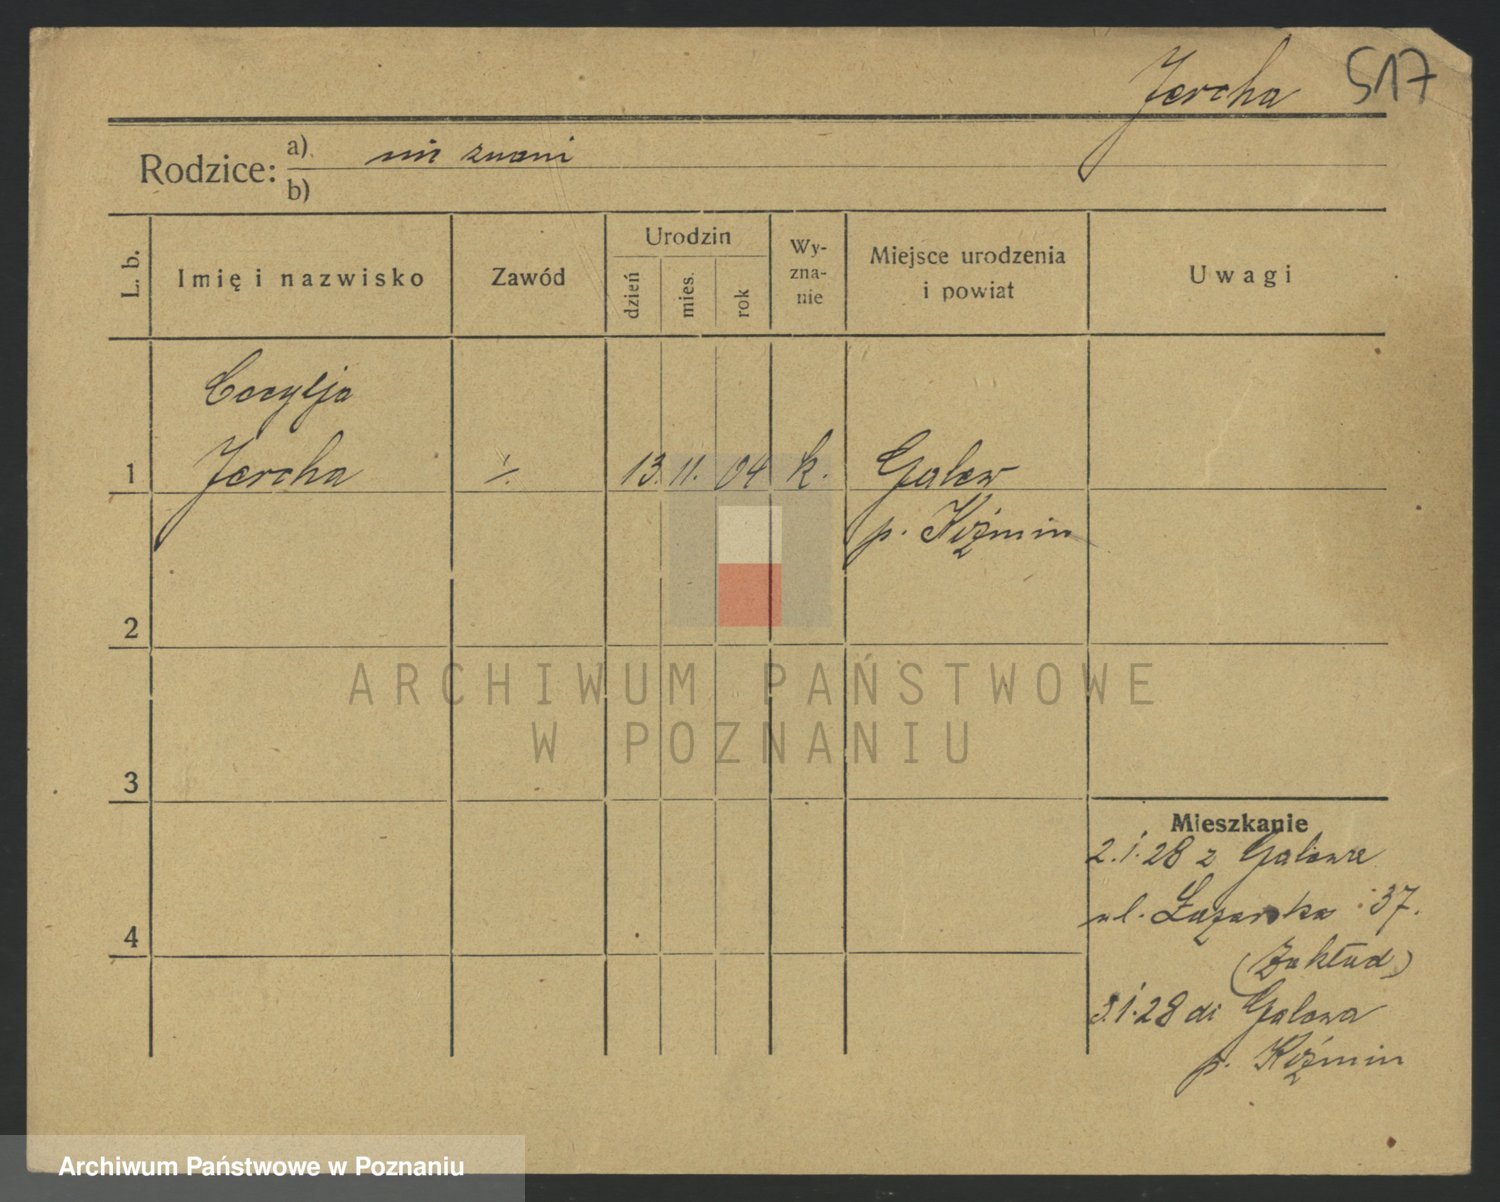 Jercha 517
Rodzice: a) nie znani
b)
L. b.
Imię i nazwisko
Zawód
Urodzin
dzień
mies.
rok
Wy-
zna-
nie
Miejsce urodzenia
i powiat
Uwagi
Cecylja
1 Jercha ./. 13. 11. 04 k. Galew
p. Koźmin
2
3
4
Mieszkanie
2.1.28 z Galewa
ul. Łazarska 37.
(Zakład)
3.1.28 do Galewa
p. Koźmin
ARCHIWUM PAŃSTWOWE
W POZNANIU
Archiwum Państwowe w Poznaniu